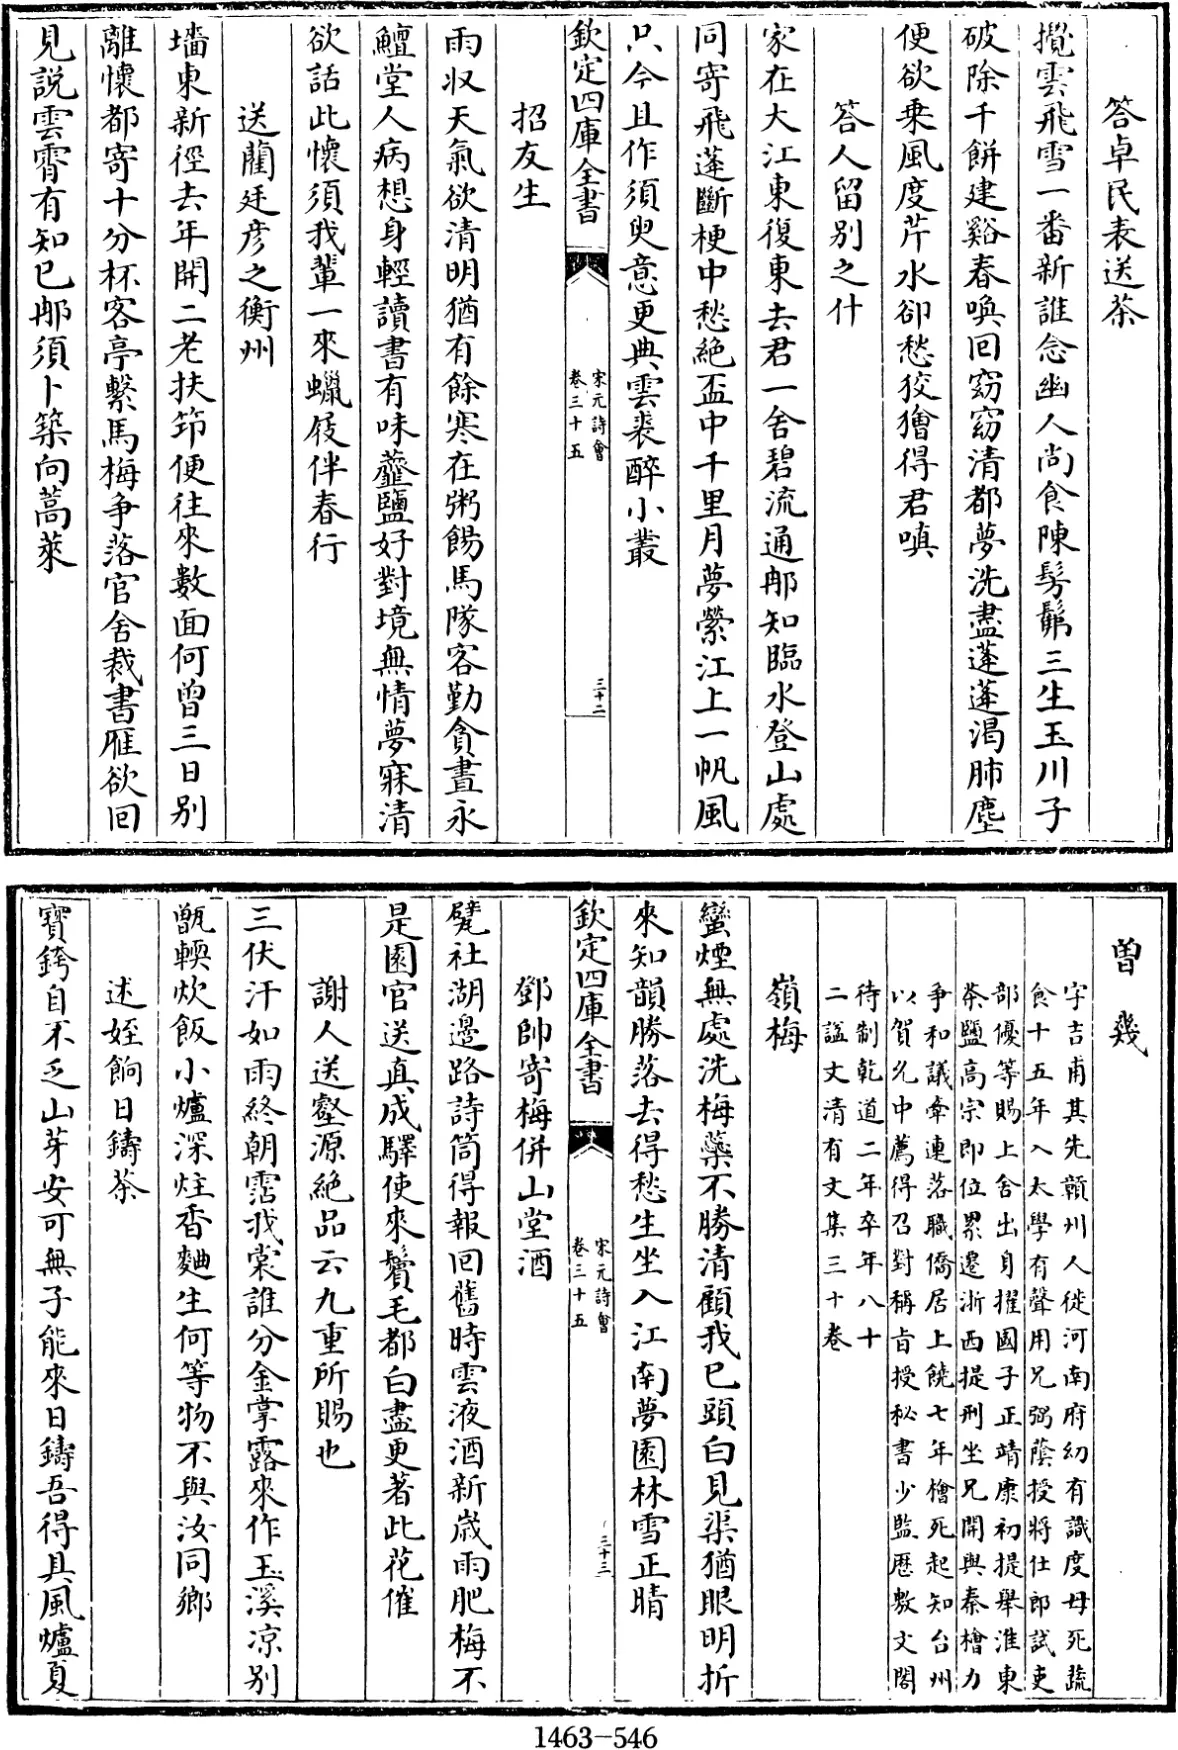 答卓民表送茶
攪雲飛雪一番新誰念幽人尚食陳髣髴三生玉川子
破除千餅建谿春喚回窈窈清都夢洗盡蓬蓬渴肺塵
便欲乗風度芹水卻愁狡獪得君嗔
答人留別之什
家在大江東復東去君一舍碧流通那知臨水登山處
同寄飛蓬斷梗中愁絶盃中千里月夢縈江上一帆風
只今且作須臾意更典雲裘醉小叢
欽定四庫全書
宋元詩會
卷三十五
三十二
招友生
雨収天氣欲清明猶有餘寒在粥餳馬隊客勤貪晝永
鱣堂人病想身輕讀書有味虀鹽好對境無情夢寐清
欲話此懷須我輩一來蠟屐伴春行
送藺廷彦之衡州
墻東新徑去年開二老扶笻便往來數面何曾三日别
離懷都寄十分杯客亭繫馬梅争落官舍裁書雁欲回
見説雲霄有知已那須卜築向蒿萊
曾幾
字吉甫其先贛州人徙河南府幼有識度母死蔬
食十五年入太學有聲用兄弼蔭授將仕郎試吏
部優等賜上舍出身擢國子正靖康初提舉淮東
茶鹽高宗即位累遷浙西提刑坐兄開與秦檜力
争和議牽連落職僑居上饒七年檜死起知台州
以賀允中薦得召對稱旨授秘書少監歴敷文閣
待制乾道二年卒年八十
二諡文清有文集三十卷
嶺梅
蠻煙無處洗梅蘂不勝清顧我已頭白見渠猶眼明折
來知韻勝落去得愁生坐入江南夢園林雪正晴
欽定四庫全書
宋元詩會
卷三十五
三十三
鄧帥寄梅併山堂酒
髲社湖邉路詩筒得報回舊時雲液酒新歳雨肥梅不
是園官送真成驛使來鬢毛都白盡更著此花催
謝人送壑源絶品云九重所賜也
三伏汗如雨終朝霑我裳誰分金掌露來作玉溪凉别
甑輭炊飯小爐深炷香麯生何等物不與汝同鄉
述姪餉日鑄茶
寳銙自不乏山芽安可無子能來日鑄吾得具風爐夏
1463-546